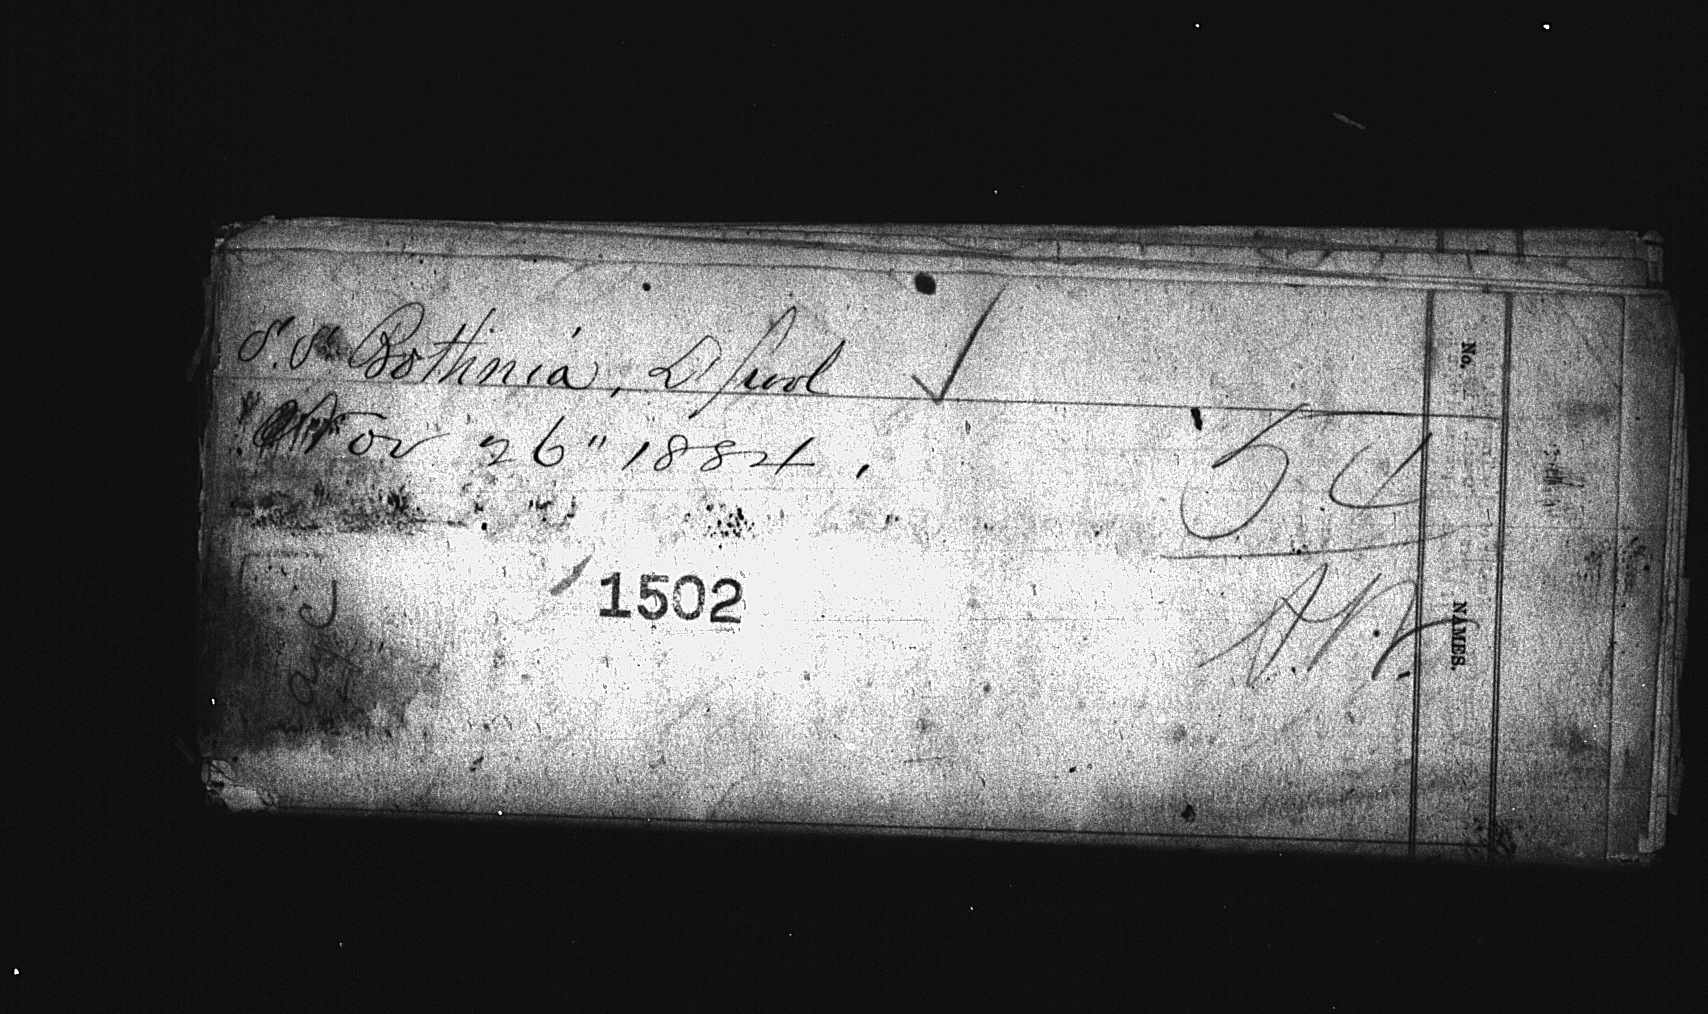 S.S. Bothnia, L'pool
Nov 26" 1884.
54
1502
No.
NAMES.